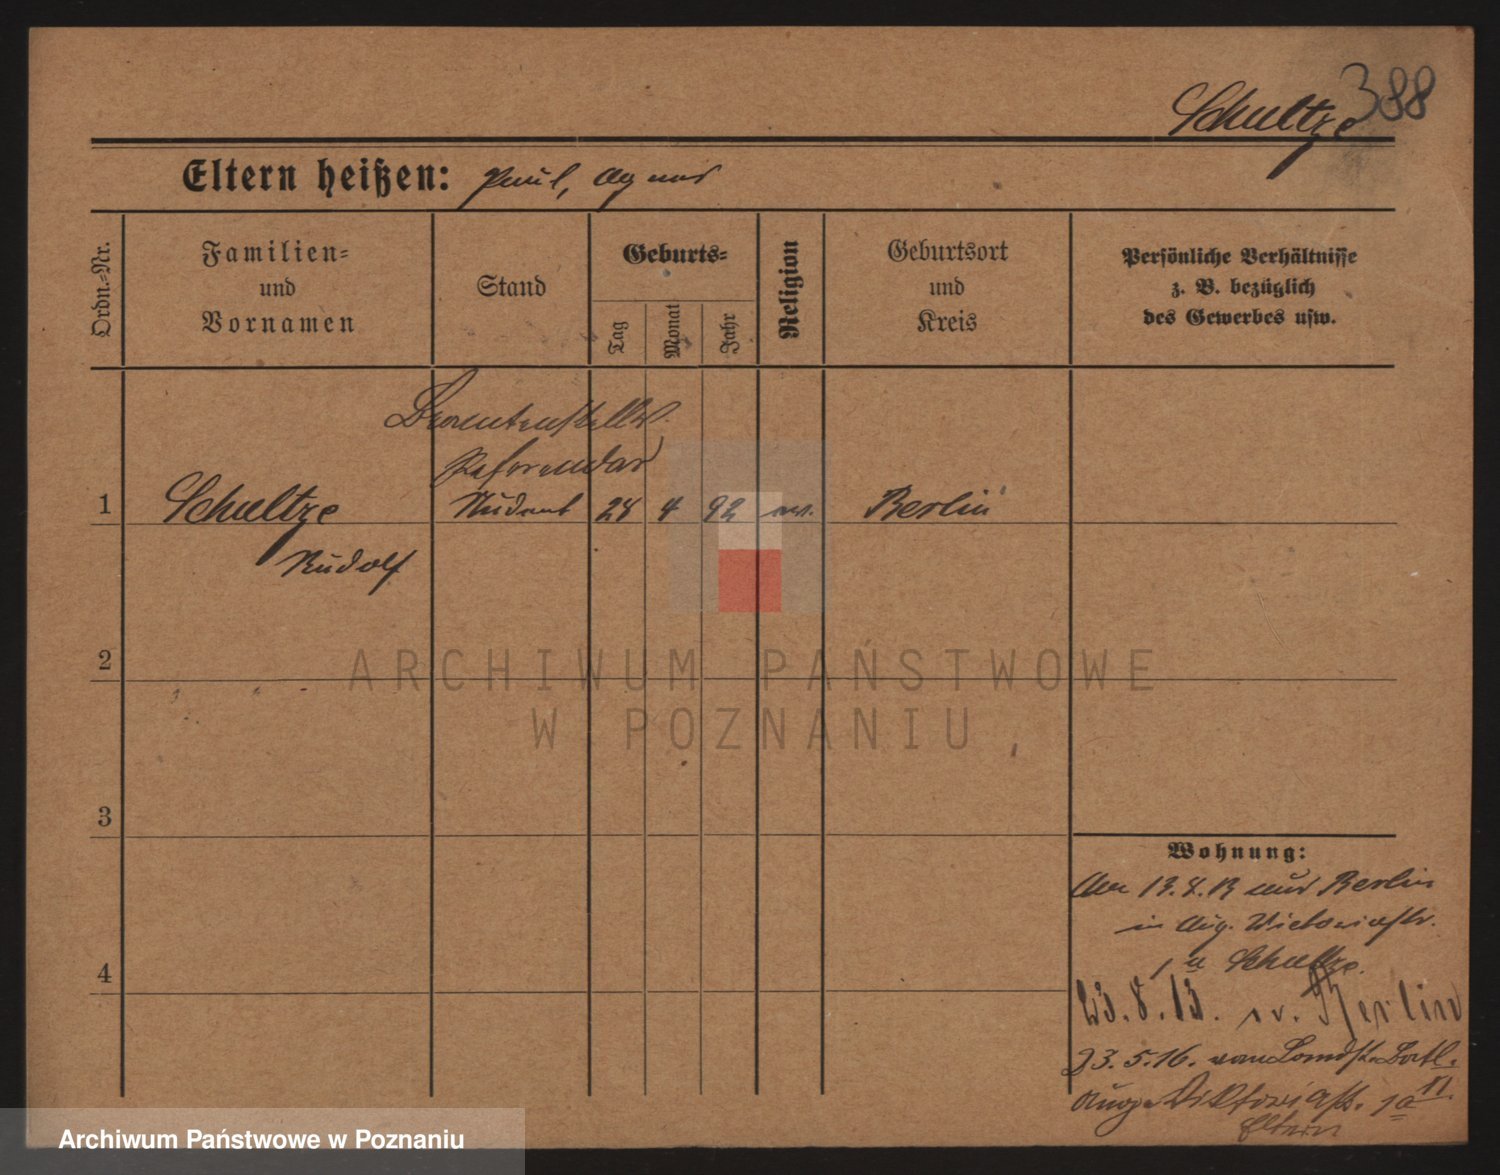 Schultze 388
Eltern heißen: Paul, Agnes
Ordn.-Nr.
Familien-
und
Vornamen
Stand
Geburts-
Tag
Monat
Jahr
Religion
Geburtsort
und
Kreis
Persönliche Verhältnisse
z. B. bezüglich
des Gewerbes usw.
Referendar
1 Schultze Student 24 4 92 ev. Berlin
Rudolf
2
3
4
Wohnung:
13.4.13 aus Berlin
in Aug. Victoriastr.
1 a Schultze.
23.8.13. n. Berlin
23.5.16. von Landst. Batl.
Aug. Viktoriastr. 1a II.
Eltern
ARCHIWUM PAŃSTWOWE
W POZNANIU
Archiwum Państwowe w Poznaniu